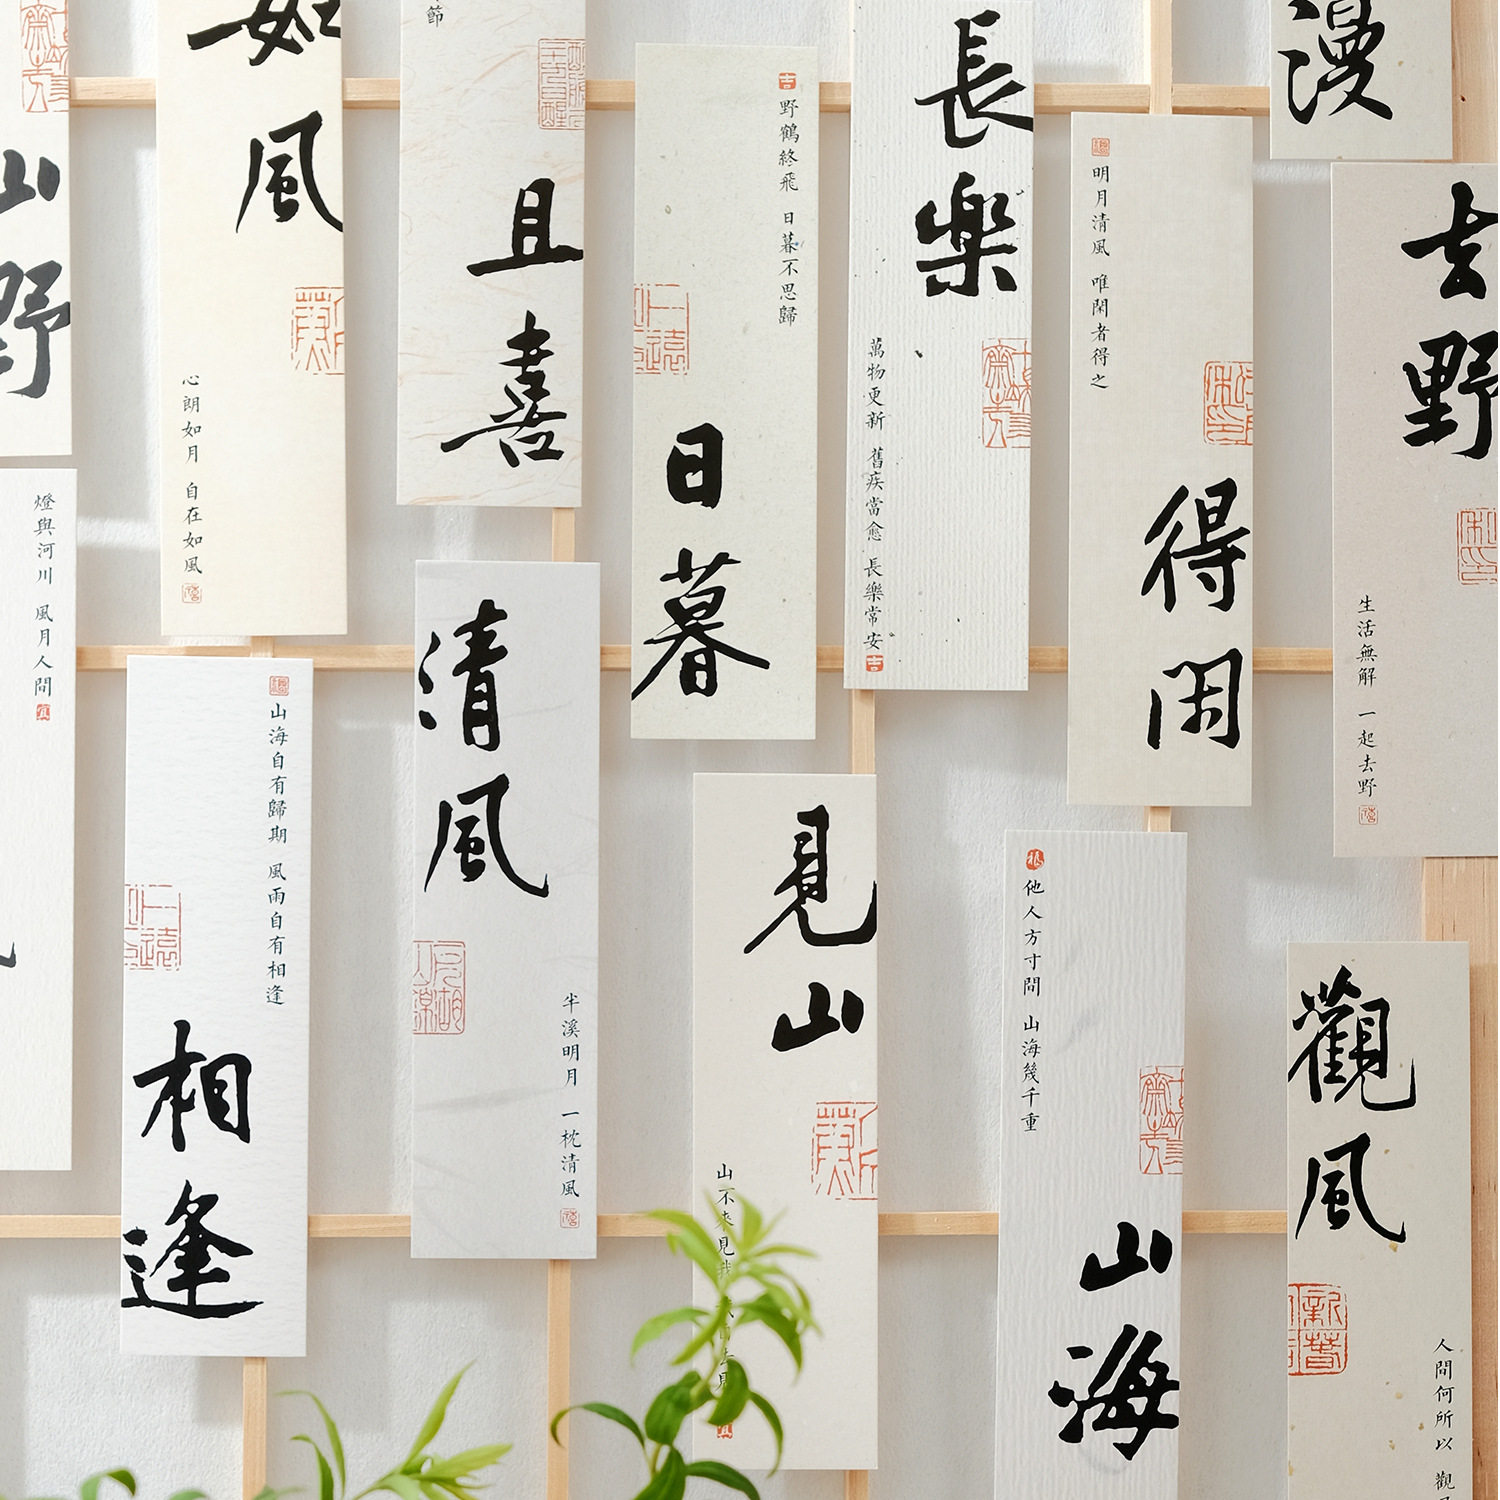 山野
如風
心朗如月 自在如風
節
且喜
野鶴終飛 日暮不思歸
日暮
長樂
萬物更新 舊疾當愈 長樂常安
明月清風 唯閑者得之
得閑
漫
去野
生活無解 一起去野
燈與河川 風月人間
山海自有歸期 風雨自有相逢
相逢
清風
半溪明月 一枕清風
見山
山不來見我
見
他人方寸間 山海幾千重
山海
觀風
人間何所以 觀